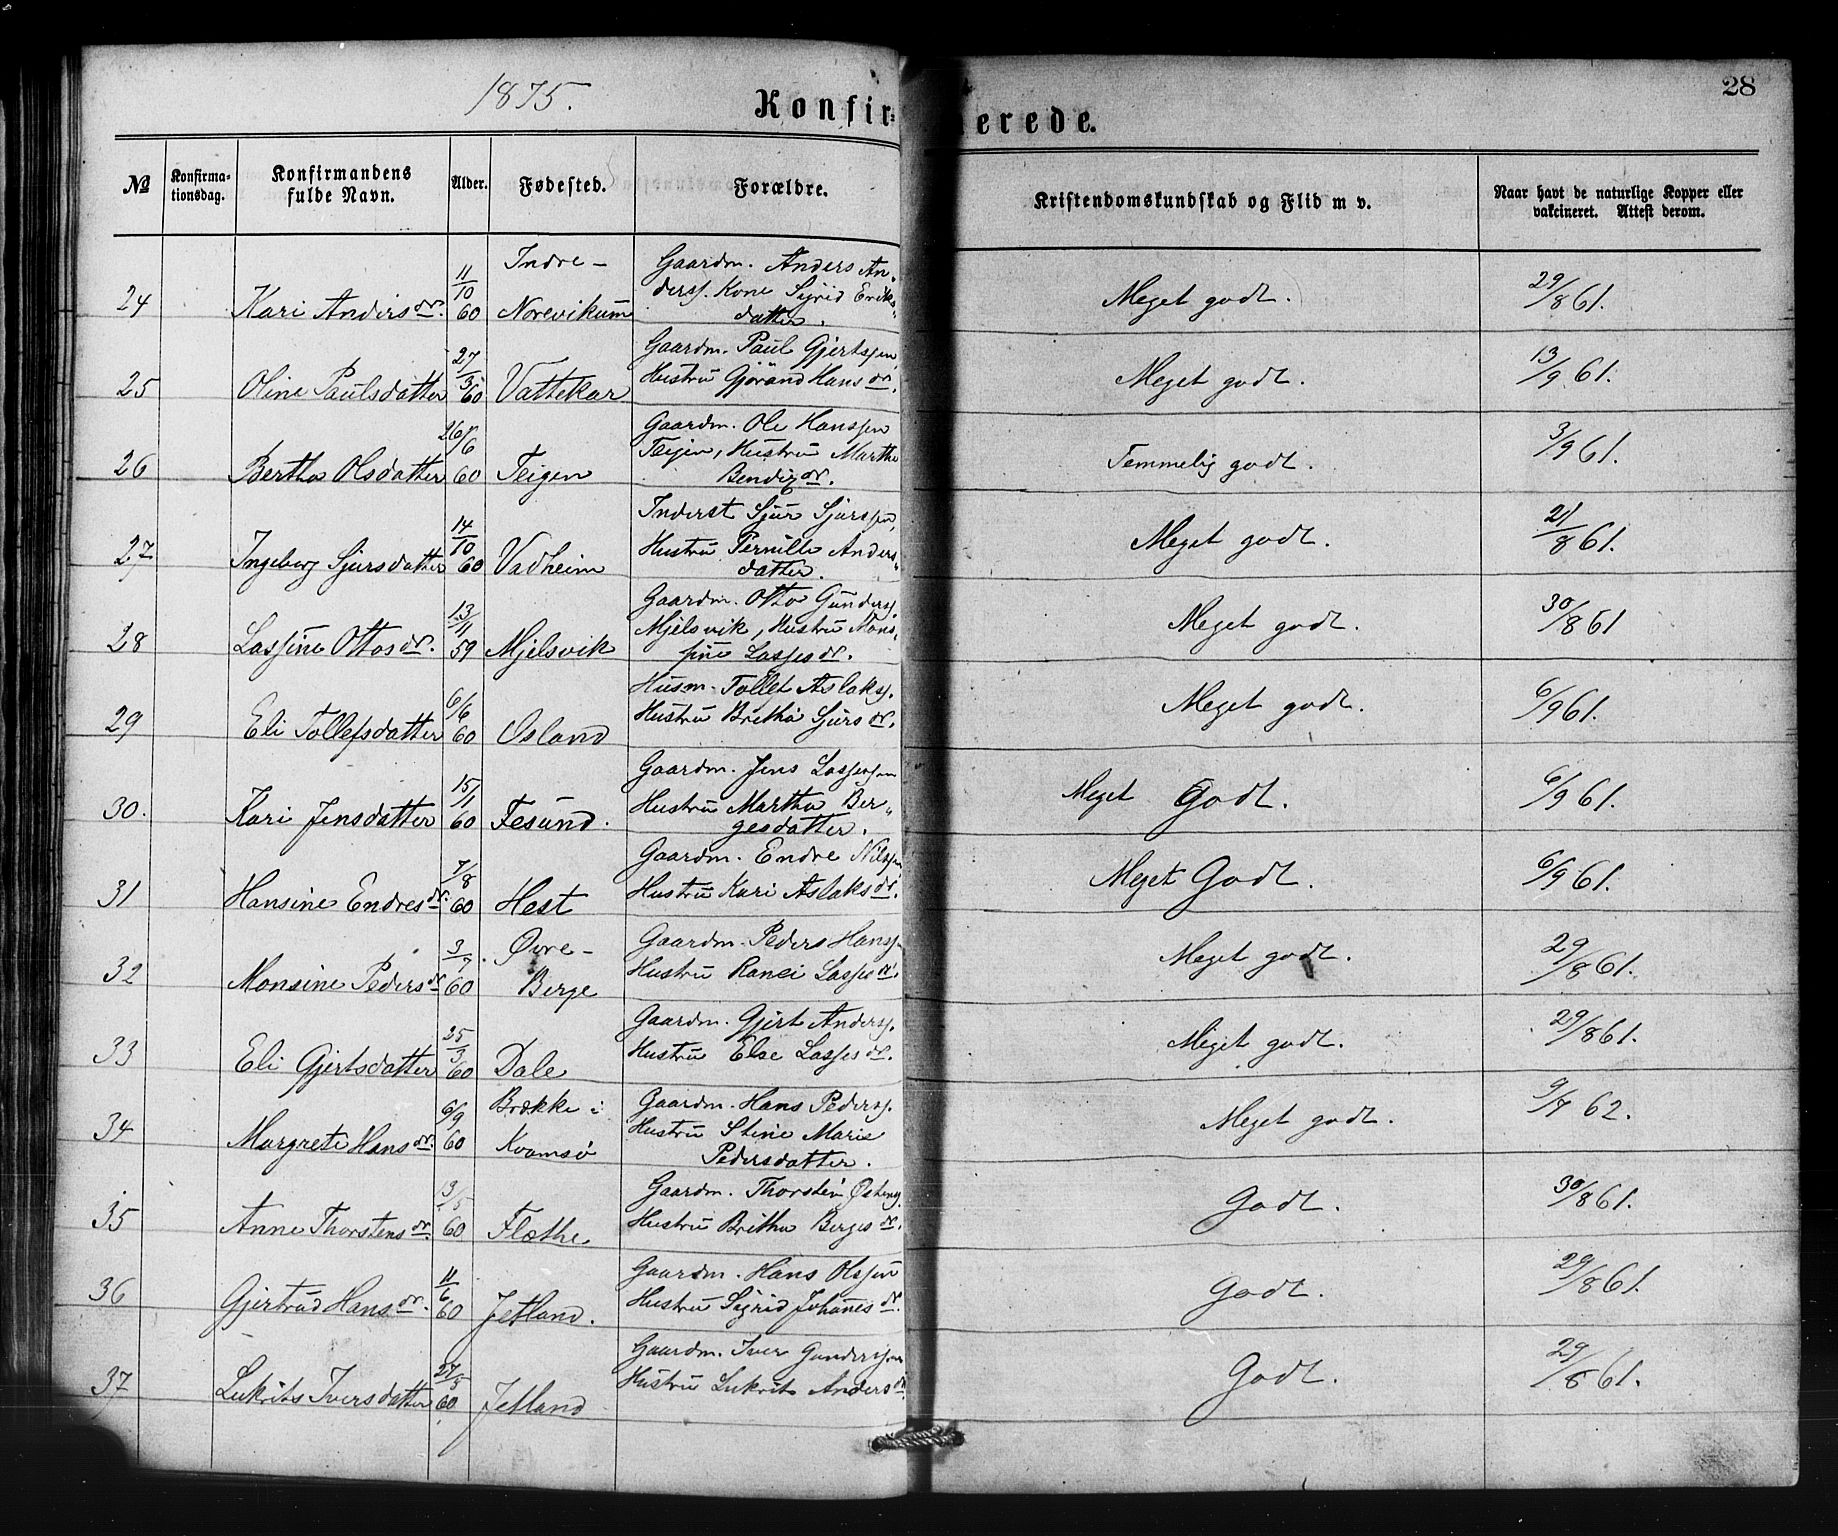 1875.
28
Konfir= erede.
№ Konfirma-tionsdag. Konfirmandens fulde Navn. Alder. Fødested. Forældre. Kristendomskundskab og Flid m v. Naar havt de naturlige Kopper eller vakcineret. Attest derom.
24 Kari Anders dr. 11/10 60 Indre- Norevikum Gaardm. Anders An-derss. Kone Sigrid Eriks-datter. Meget godt. 29/8 61.
25 Oline Paulsdatter 27/3 60 Vattekar Gaardm. Paul Gjertssen, Hustru Gjørand Hans dr. Meget godt. 13/9 61.
26 Bertha Olsdatter 26/6 60 Teigen Gaardm. Ole Hanssen Teigen, Hustru Martha Bendix dr. Temmelig godt. 3/9 61.
27 Ingeborg Sjursdatter 14/10 60 Vadheim Inderst Sjur Sjurssen, Hustru Pernille Anders-datter. Meget godt. 21/8 61.
28 Lassine Ottos dr. 13/11 59 Mjelsvik Gaardm. Otto Gunderss. Mjelsvik, Hustru Mons-sine Lasses dr. Meget godt. 30/8 61
29 Eli Tollefsdatter 6/6 60 Osland Husm. Tollef Aslakss. Hustru Britha Sjurs dr. Meget godt. 6/9 61.
30. Kari Jensdatter 15/1 60 Tesund. Gaardm. Jens Lassessen Hustru Martha Ber-gesdatter. Meget Godt. 6/9 61.
31 Hansine Endres dr. 7/8 60 Hest Gaardm. Endre Nilssen, Hustru Kari Aslaks dr. Meget Godt. 6/9 61.
32 Monsine Peders dr. 3/7 60 Øvre- Berge Gaardm. Peders Hanss. Hustru Ranei Lasses dr. Meget godt. 29/8 61.
33 Eli Gjertsdatter 25/3 60 Dale Gaardm. Gjert Anderss. Hustru Else Lasses dr. Meget godt. 29/8 61.
34 Margrete Hans dr. 6/9 60 Brække i Kvamsø Gaardm. Hans Pederss. Hustru Stine Marie Pedersdatter. Meget godt. 9/7 62.
35 Anne Thorstens dr. 13/5 60 Flæthe Gaardm. Thorstein Østens. Hustru Britha Berges dr. Godt. 30/8 61.
36 Gjertrud Hans dr. 11/6 60 Jetland. Gaardm. Hans Olssen Hustru Sigrid Johanes dr. Godt. 29/8 61.
37 Lukrits Iversdatter 27/5 60 Jetland Gaardm. Iver Gunderssen Hustru Lukrits Anders dr. Godt. 29/8 61.